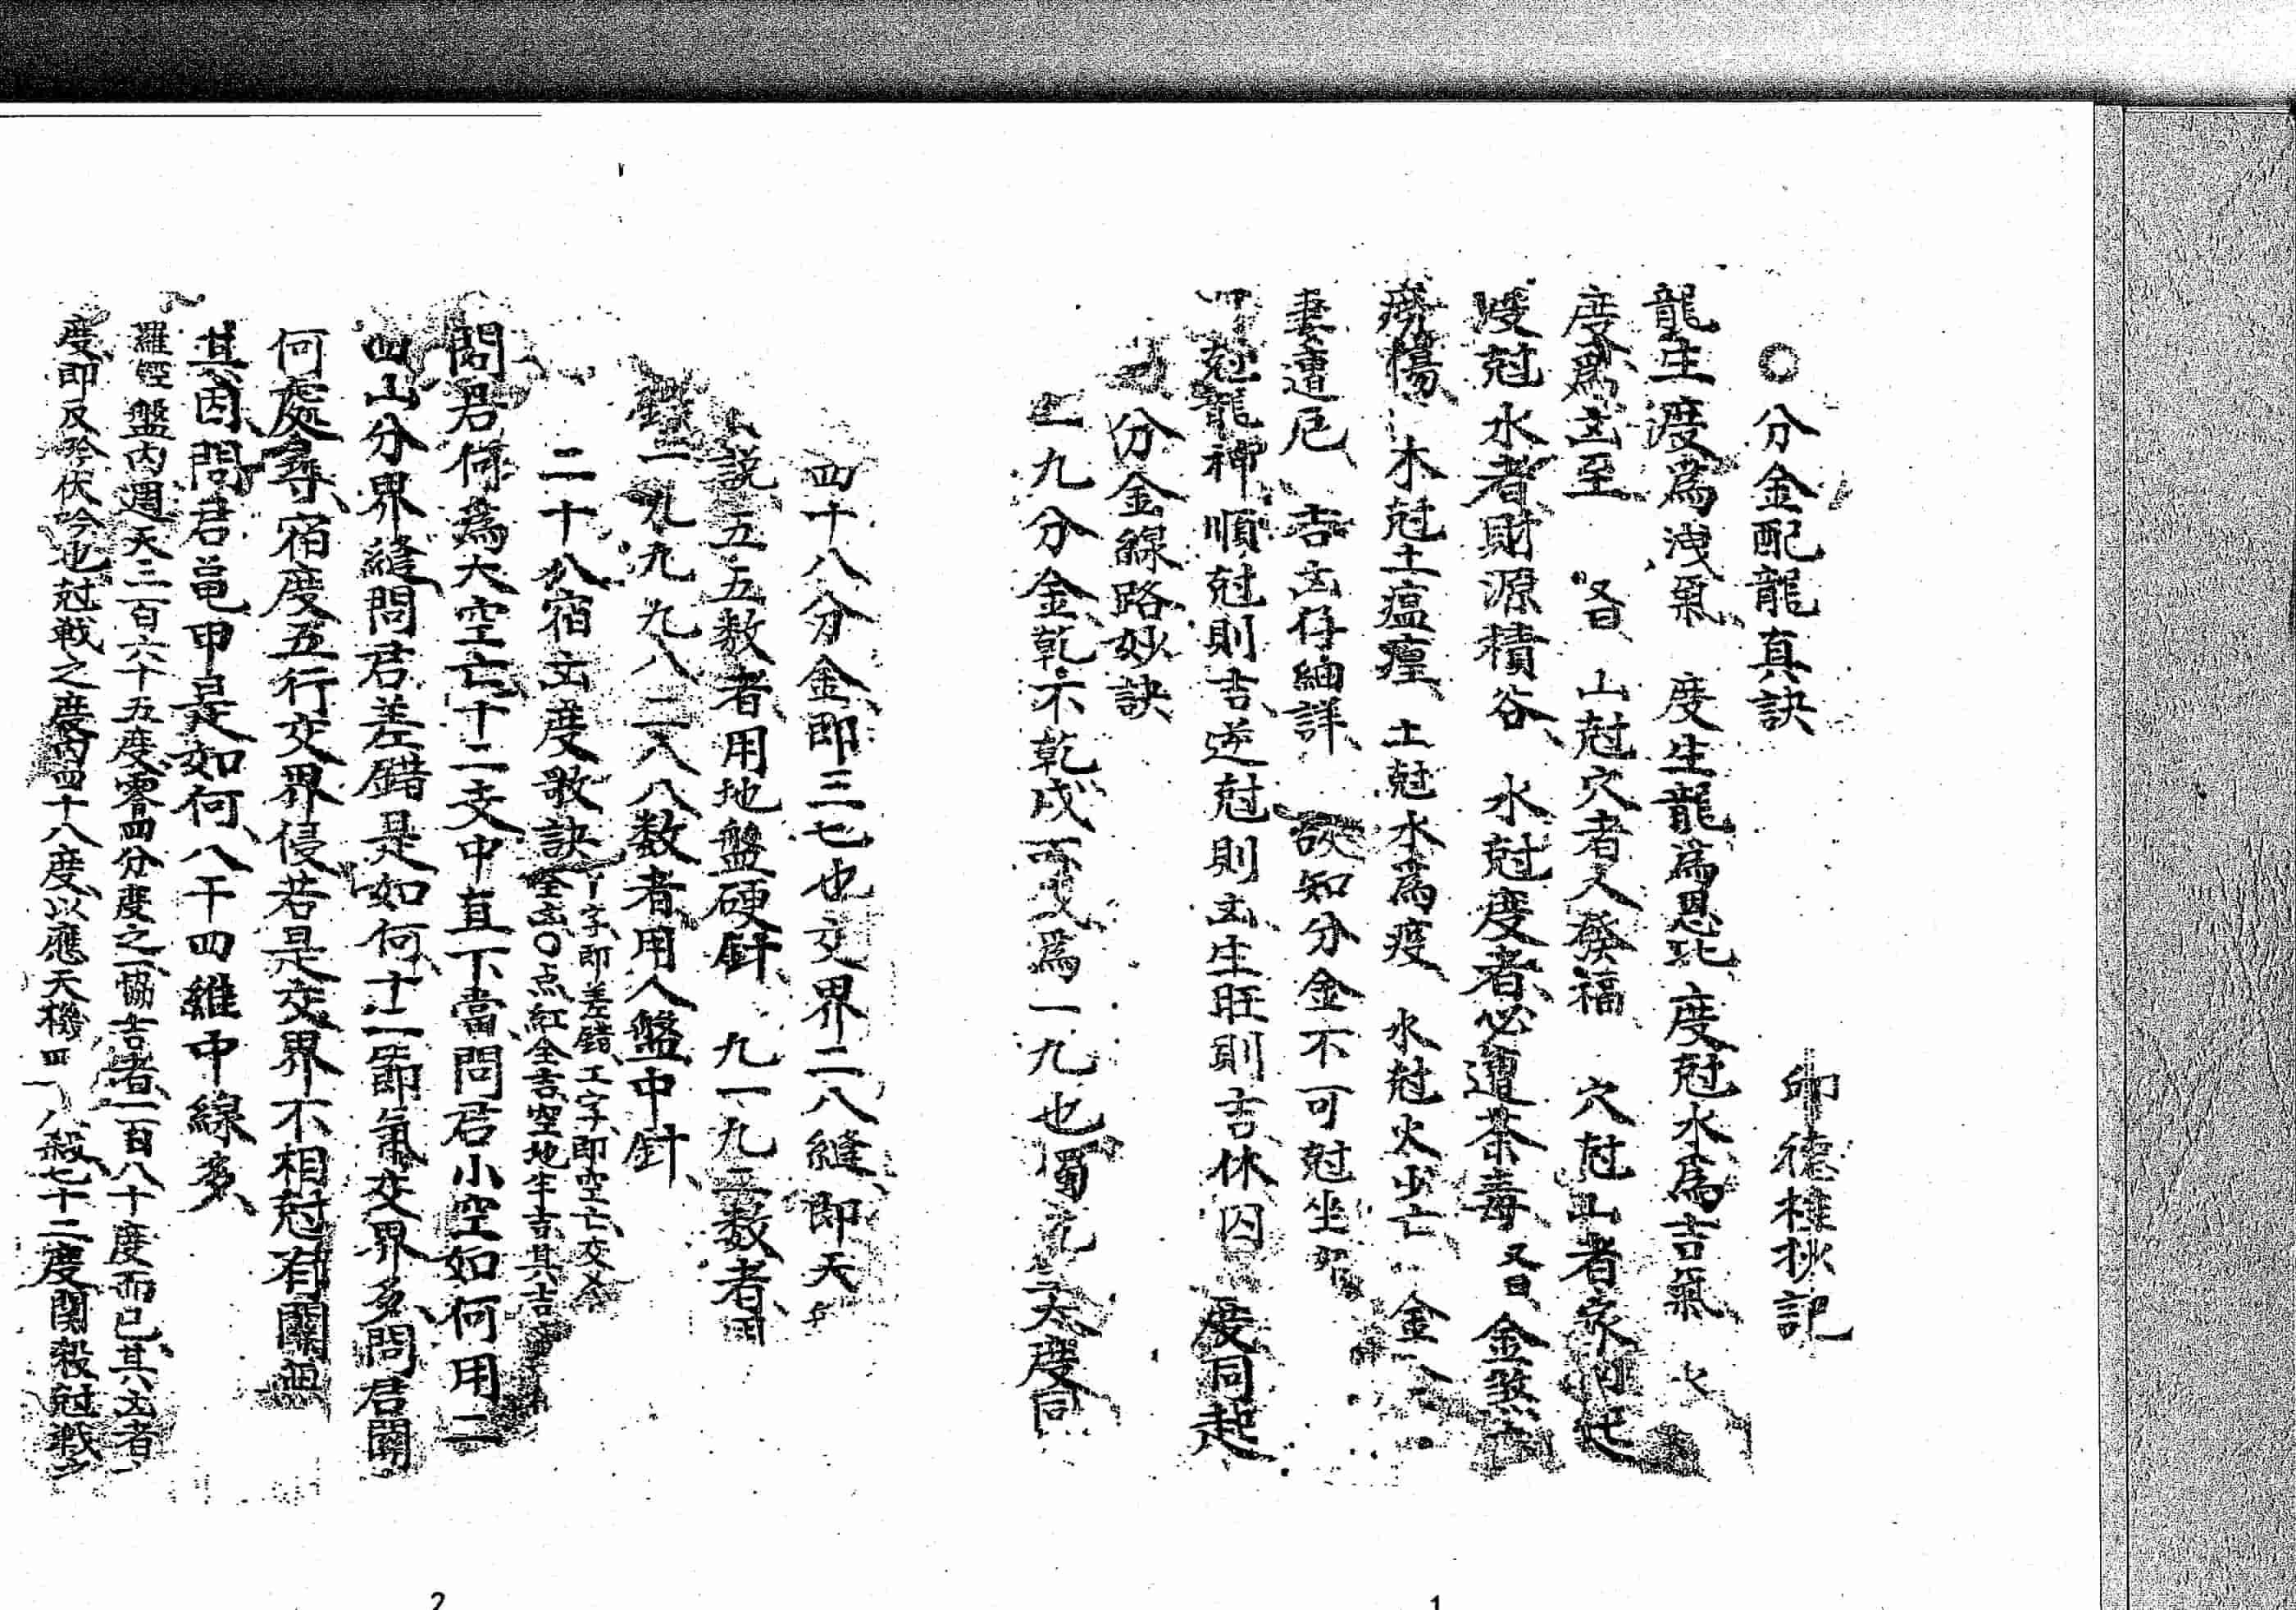 ○分金配龍真訣
卯德樁狄記
龍生渡為洩氣 度生龍為恩 度尅水為吉氣
度為凶至 又曰 山尅穴者人發福 穴尅山者家
度尅水者財源積谷、水尅度者必遭荼毒、又曰金煞
瘠傷 木尅土瘟瘟、土尅水為疫 水尅火少亡 金
妻遭厄、吉凶仔細詳、訣知分金不可尅坐
尅龍神順尅則吉逆尅則凶生旺則吉休囚 度同起
分金線路妙訣
一九分金乾不乾戌不戌為一九也 太度同
四十八分金即三七也交界二八縫、即天
說五五数者用地盤硬針、九一九二数者
一九九九八二八八数者用人盤中針、
二十八宿凶度歌訣
丁字即差錯、工字即空亡、交乂
全凶○点紅全吉空地半吉其吉
問君何為大空亡十二支中直下當問君小空如何用二
四山分界縫問君差錯是如何十二節氣交界多問君關
何處尋宿度五行交界侵若是交界不相尅有關
其因問君黽甲是如何八干四維中線多、
羅經盤内週天三百六十五度零四分度之一協吉者一百八十度而已其凶者
度即反吟伏吟也尅戰之度内四十八度以應天機四 八殺七十二度関殺尅戰之
2
1